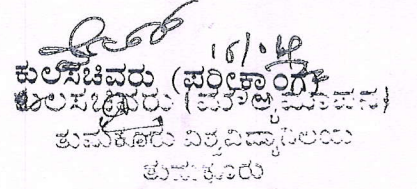 ಕುಲಸಚಿವರು (ಪರೀಕ್ಷಾಂಗ)
ಕುಲಸಚಿವರು (ಮೌಲ್ಯಮಾಪನ)
ತುಮಕೂರು ವಿಶ್ವವಿದ್ಯಾನಿಲಯ
ತುಮಕೂರು